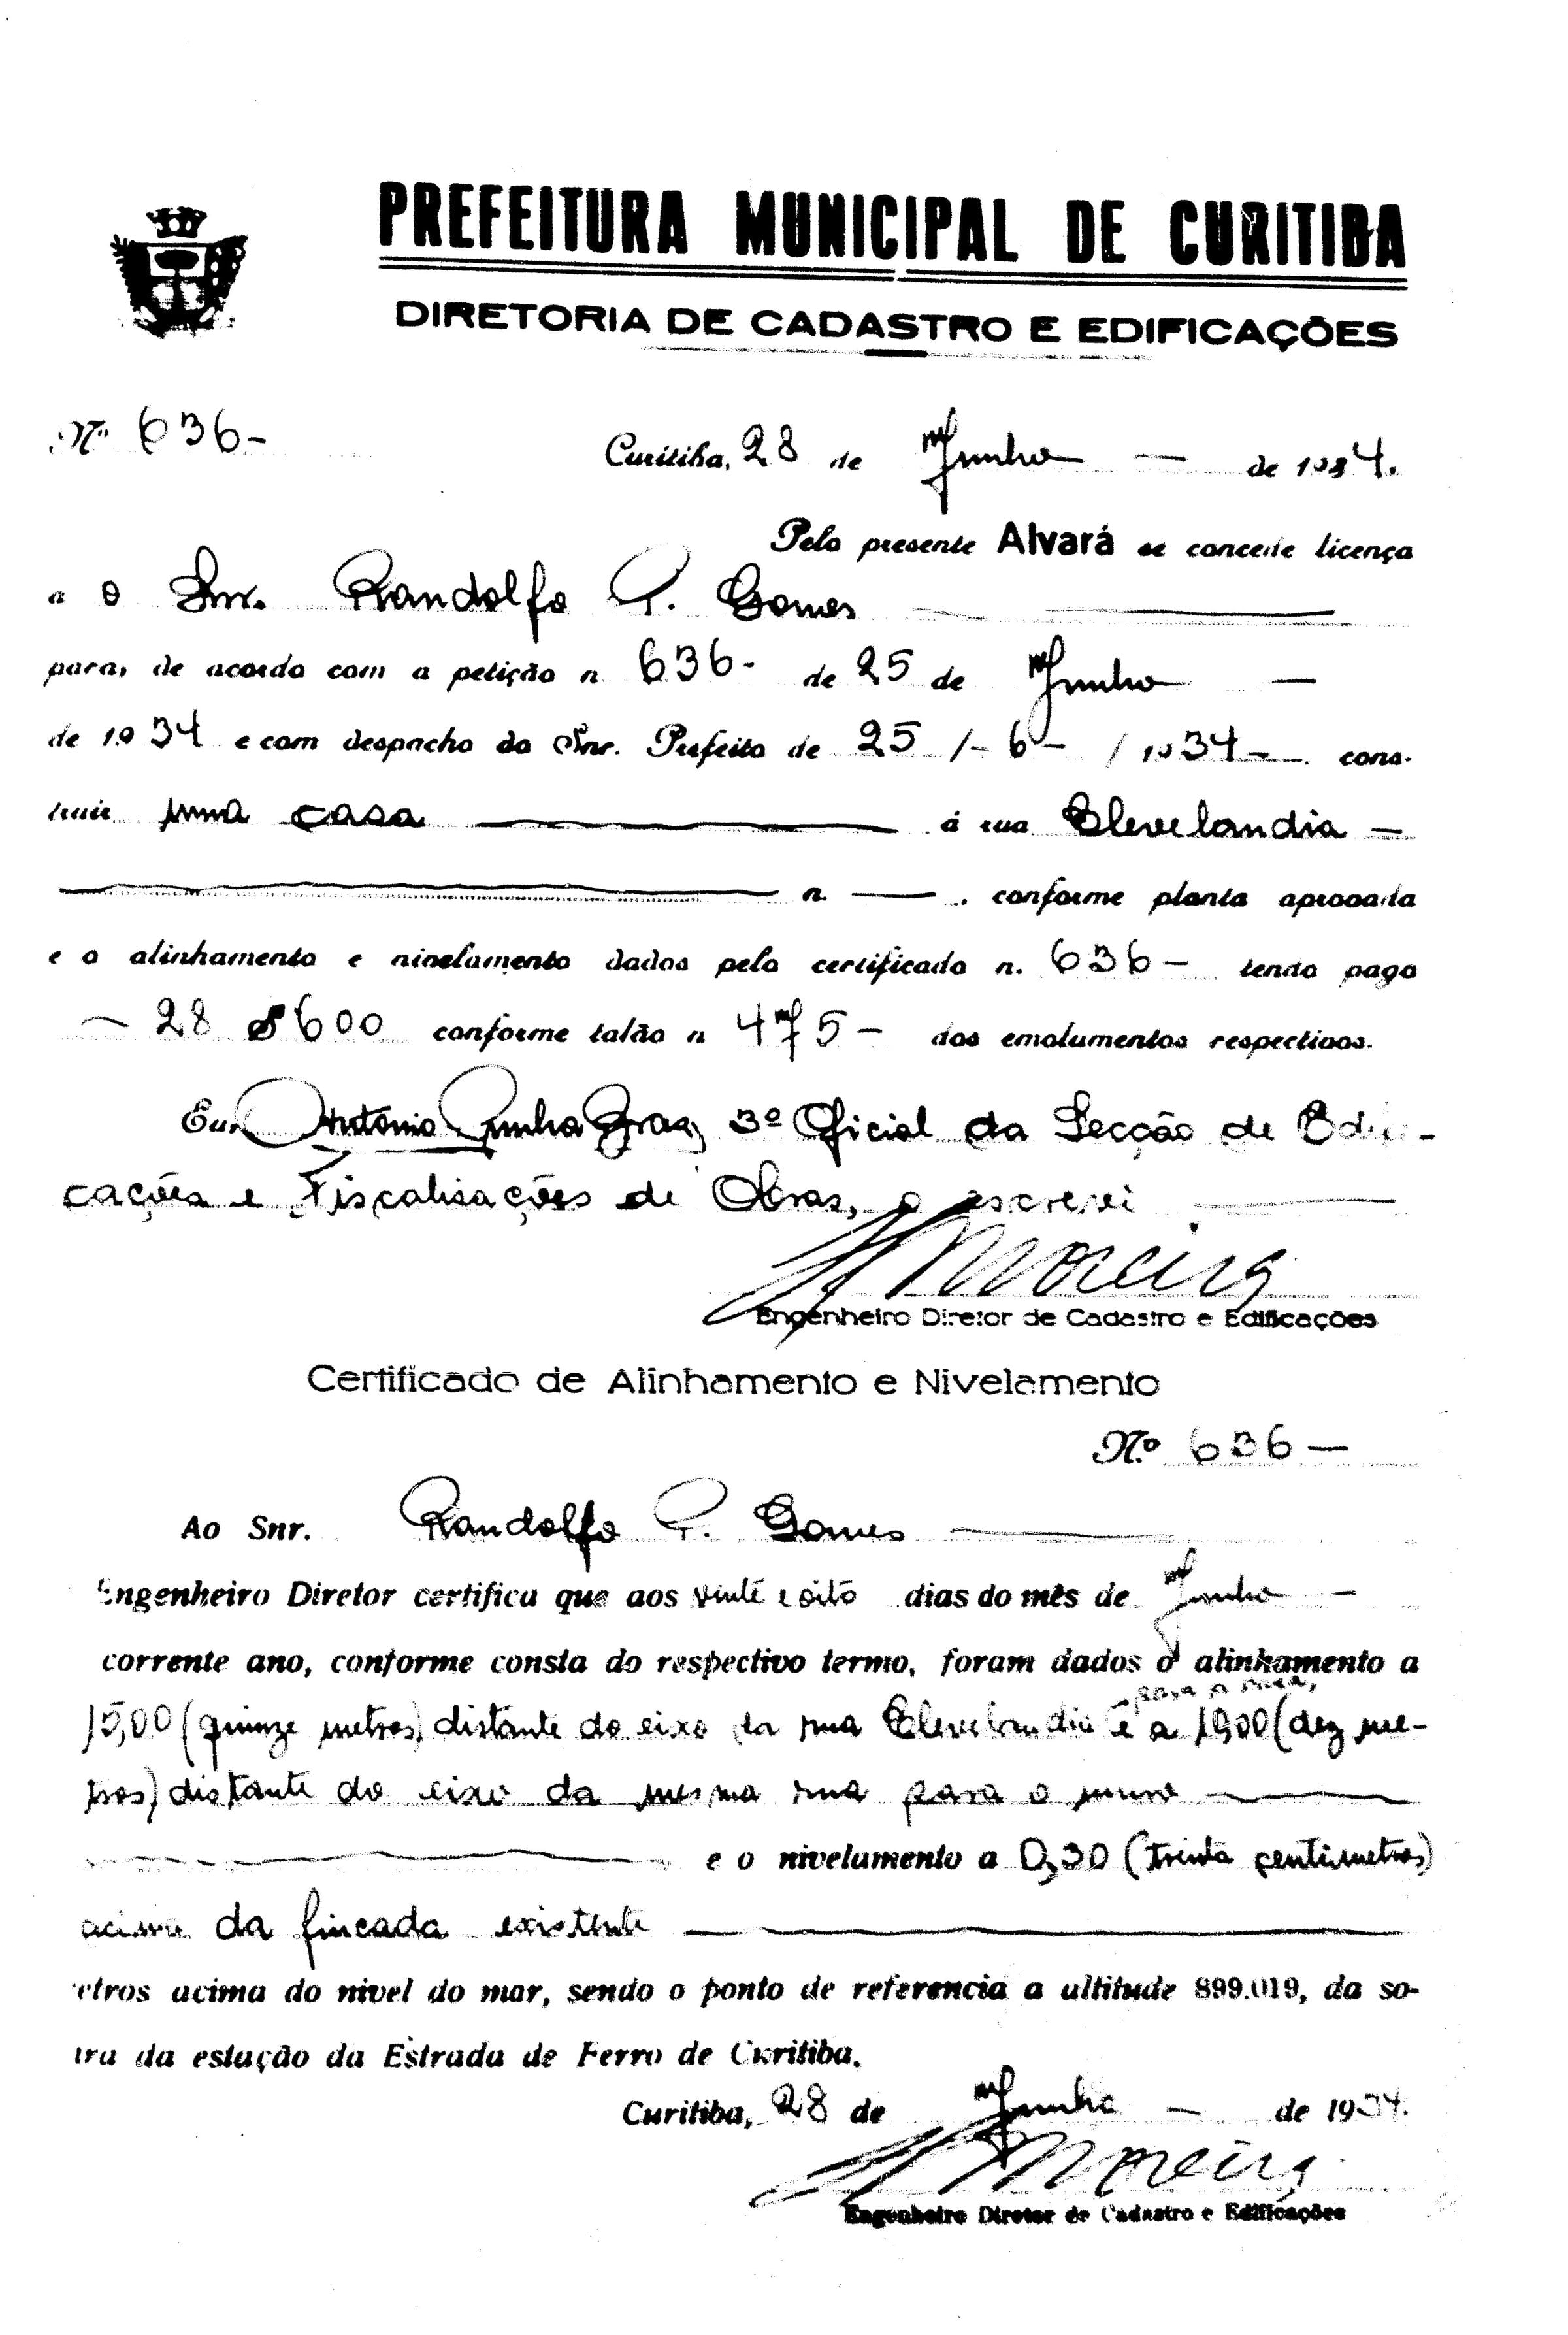 PREFEITURA MUNICIPAL DE CURITIBA
DIRETORIA DE CADASTRO E EDIFICAÇÕES
Nº 636-
Curitiba, 28 de Junho — de 1934.
Pelo presente Alvará se concede licença
a o Snr. Randolfo P. Gomes
para, de acordo com a petição n. 636- de 25 de Junho —
de 1934 e com despacho do Snr. Prefeito de 25 /-6- / 1934-. cons-
truir uma casa — á rua Clevelandia —
— n. — . conforme planta aprovada
e o alinhamento e nivelamento dados pelo certificado n. 636- tendo pago
- 28$600 conforme talão n 475- dos emolumentos respectivos.
Eu, Antonio Cunha Braz, 3º Oficial da Secção de Edifi-
cações e Fiscalisações de Obras, o escrevi
Moreira
Engenheiro Diretor de Cadastro e Edificações
Certificado de Alinhamento e Nivelamento
N.º 636 —
Ao Snr. Randolfo P. Gomes
Engenheiro Diretor certifica que aos vinte e oito dias do mês de Junho —
corrente ano, conforme consta do respectivo termo, foram dados o alinhamento a
para a casa,
15,00 (quinze metros) distante do eixo da rua Clevelandia e a 10,00 (dez me-
tros) distante do eixo da mesma rua para o muro
e o nivelamento a 0,30 (trinta centimetros)
acima da fincada existente
etros acima do nivel do mar, sendo o ponto de referencia a altitude 899.019, da so-
ira da estação da Estrada de Ferro de Curitiba.
Curitiba, 28 de Junho — de 1934.
Moreira
Engenheiro Diretor de Cadastro e Edificações